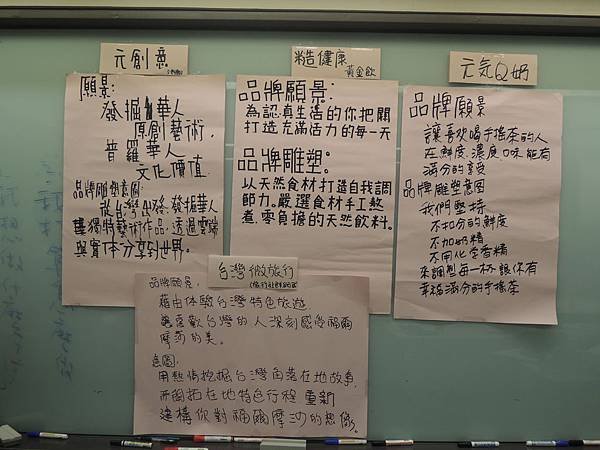 元創意
願景:
發掘華人
原創藝術,
普羅華人
文化價值.
品牌雕創意圖:
從台灣出發,發掘華人
獨特藝術作品,透過雲端
與實体分享到世界.
糙健康
黃金飲
品牌願景:
為認真生活的你把關
打造充滿活力的每一天
品牌雕塑:
以天然食材打造自我調
節力。嚴選食材手工熬
煮,零負擔的天然飲料。
元気Q奶
品牌願景
讓喜歡喝手搖茶的人
在鮮度、濃度、口味能有
滿分的享受
品牌雕塑意圖
我們堅持
不扣分的鮮度
不加奶精
不用化学香精
來調製每一杯讓你有
幸福滿分的手搖茶
台灣微旅行
品牌願景:
藉由体驗台灣特色旅遊
讓喜歡台灣的人深刻感受福爾
摩莎的美。
意圖:
用熱情挖掘台灣角落在地故事,
在地特色行程 重新
建構你對福爾摩沙的想像。